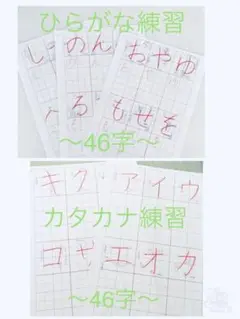 ひらがな練習
し のん おやゆ
へ ろ もせを
～46字～
キク アイウ
カタカナ練習
コサ エオカ
～46字～